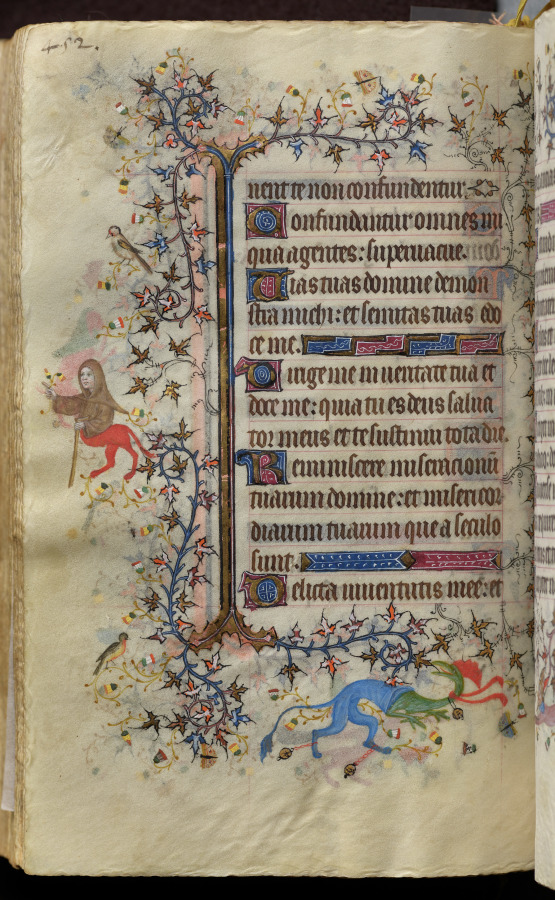 452.
nent te non confundentur.
Confundantur omnes ini
qua agentes: supervacue.
Vias tuas domine demon
stra michi: et semitas tuas edo
ce me.
Dirige me in veritate tua et
doce me: quia tu es deus salva
tor meus et te sustinui tota die.
Reminiscere miseracionū
tuarum domine: et misericor
diarum tuarum que a seculo
sunt.
Delicta iuventutis mee: et